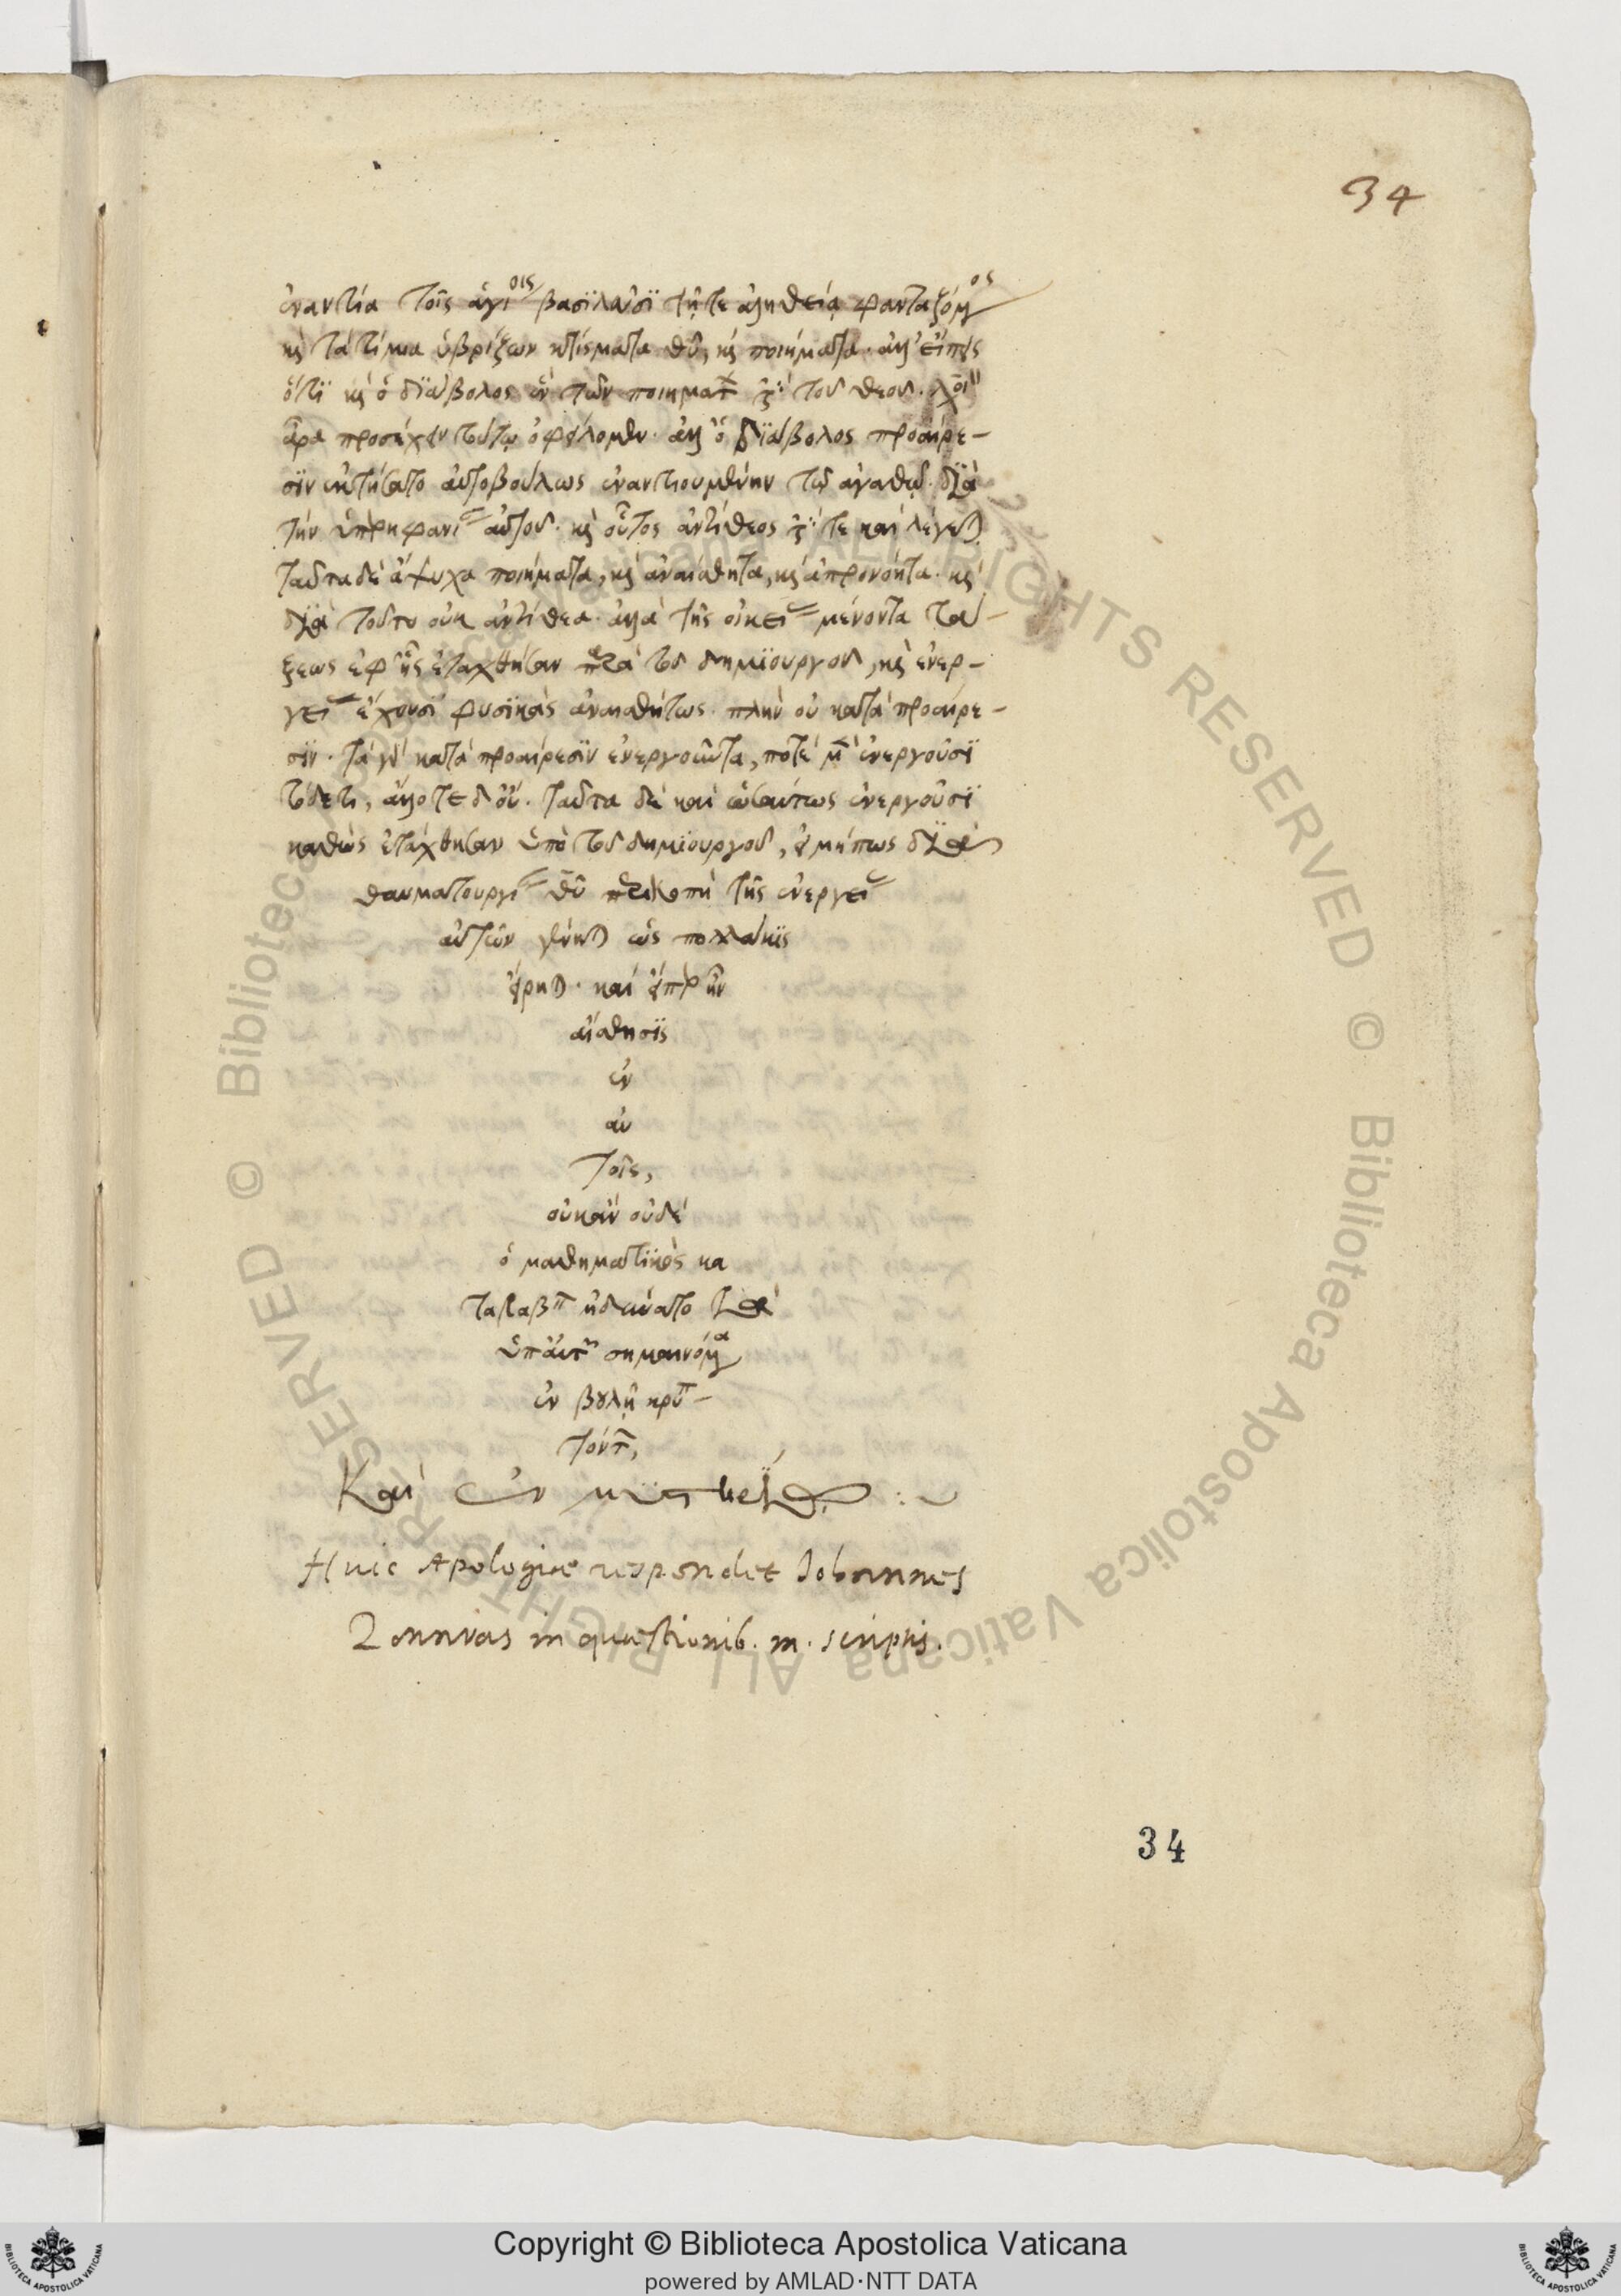 34
ἐναντία τοῖς ἁγίοις βασιλεῦσι τῇ τε ἀληθείᾳ φανταζόμενος
καὶ τὰ τίμια ὑβρίζων κτίσματα θῦ, καὶ ποιήματα. ἀλλ' εἴποις
ὅτι καὶ ὁ διάβολος ἓν τῶν ποιημάτων ἐστὶ τοῦ θεοῦ.
ἄρα προσέχειν τούτῳ ὀφείλομεν. ἀλλ' ὁ διάβολος προαίρε-
σιν ἐκτήσατο αὐτοβούλως ἐναντιουμένην τῷ ἀγαθῷ. διὰ
τὴν ὑπερηφανίαν αὐτοῦ. καὶ οὗτος ἀντίθεος ἔστί τε καὶ λέγεται.
ταῦτα δὲ ἄψυχα ποιήματα, καὶ ἀναίσθητα, καὶ ἀπρονόητα. καὶ
διὰ τοῦτο οὐκ ἀντίθεα. ἀλλὰ τῆς οἰκείας μένοντα τά-
ξεως ἐφ' ἧς ἐτάχθησαν παρὰ τοῦ δημιουργοῦ, καὶ ἐνερ-
γείας ἔχουσι φυσικὰς ἀναισθήτως. πλὴν οὐ κατὰ προαίρε-
σιν. τὰ γὰρ κατὰ προαίρεσιν ἐνεργοῦντα, ποτὲ μὲν ἐνεργοῦσι
τόδε τι, ἄλλοτε δ' οὔ. ταῦτα δὲ καὶ ὡσαύτως ἐνεργοῦσι
καθὼς ἐτάχθησαν ὑπὸ τοῦ δημιουργοῦ, εἰ μήπως διὰ
θαυματουργίας θῦ παρεκκοπὴ τῆς ἐνεργείας
αὐτῶν γένηται ὡς πολλάκις
εἴρηται. καὶ εἴπερ ἦν
αἴσθησις
ἐν
αὐ
τοῖς,
οὐκ ἂν οὐδὲ
ὁ μαθηματικὸς κα
ταλαβεῖν ἠδύνατο τὰ
ὑπ' αὐτῶν σημαινόμενα
ἐν βουλῇ κρυπ-
τόντων,
Καὶ ἐν
Huic Apologiae respondet Johannes
Zonaras in quaestionib. m. scriptis.
34
Copyright © Biblioteca Apostolica Vaticana
powered by AMLAD·NTT DATA